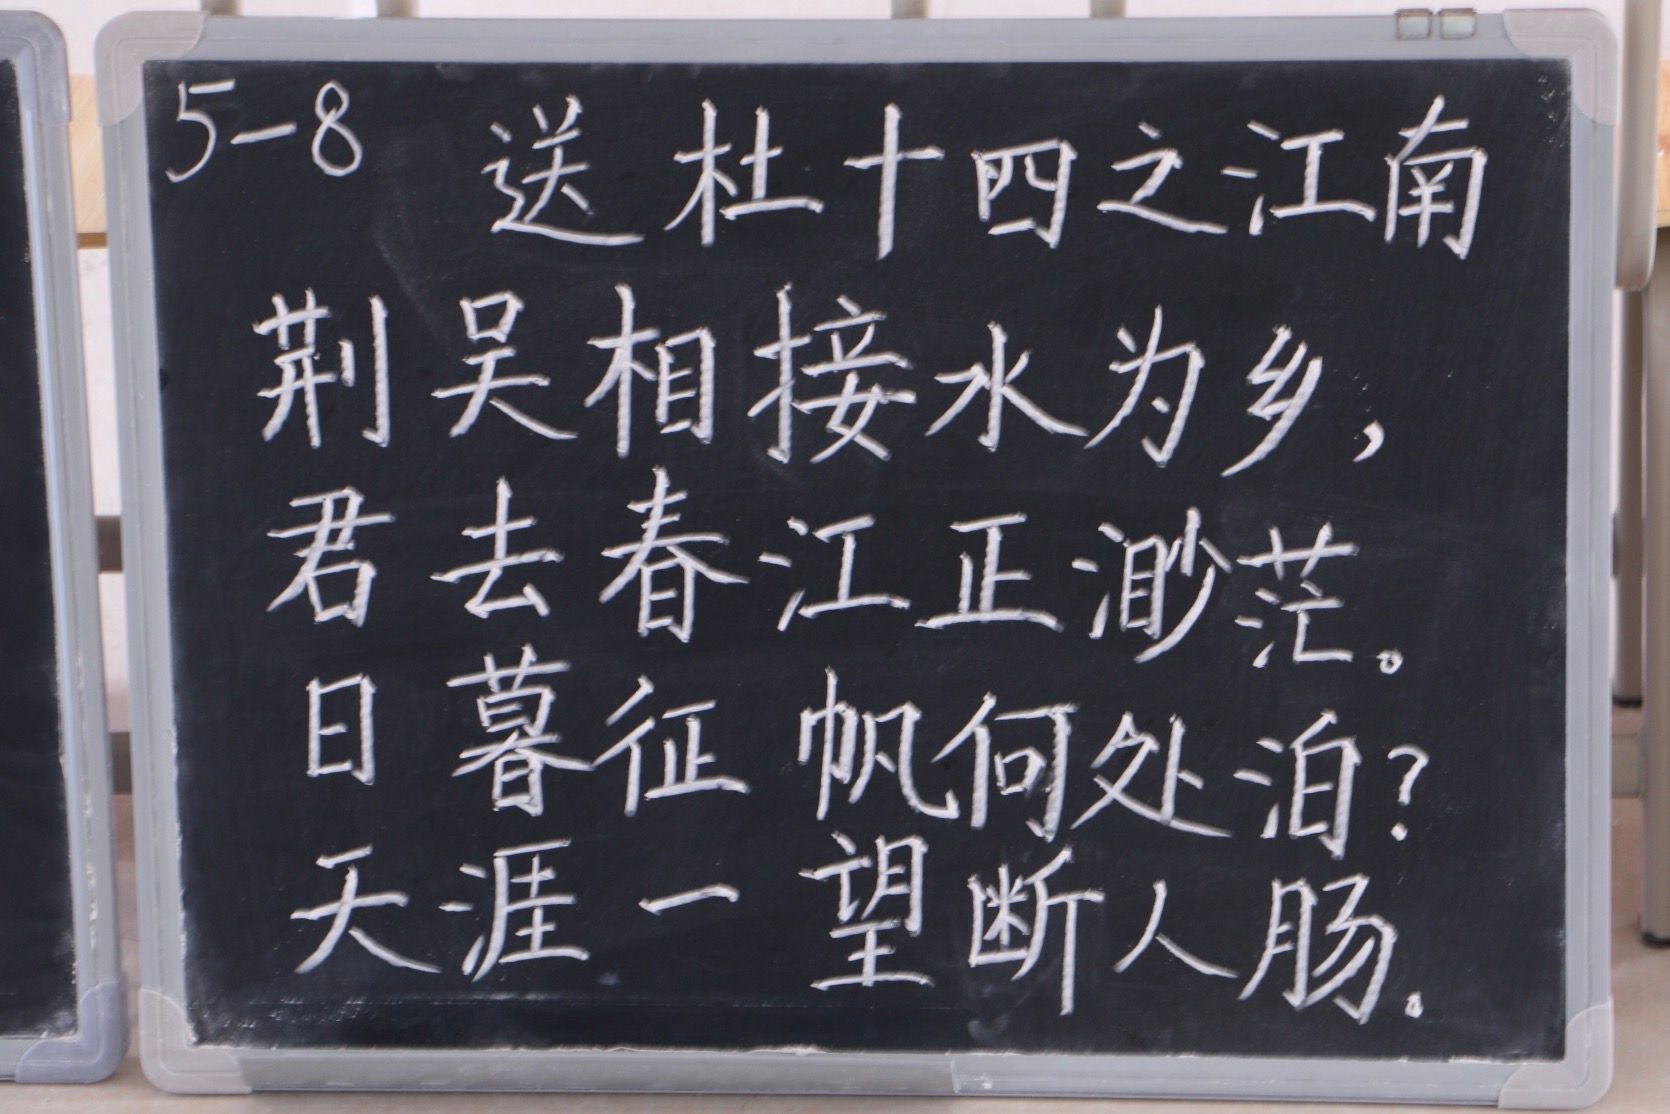 5-8 送杜十四之江南
荆吴相接水为乡，
君去春江正渺茫。
日暮征帆何处泊？
天涯一望断人肠。